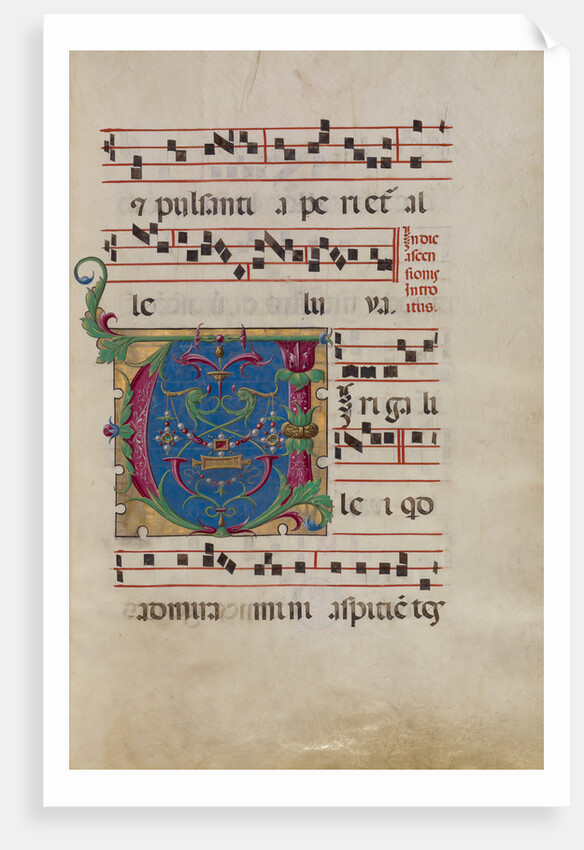 ⁊ pulsanti a pe riet᷑ al
le lu ya.
In die
ascen
sionis
Intro
itus.
V iri ga li
le i qd
admira mini aspiciētes